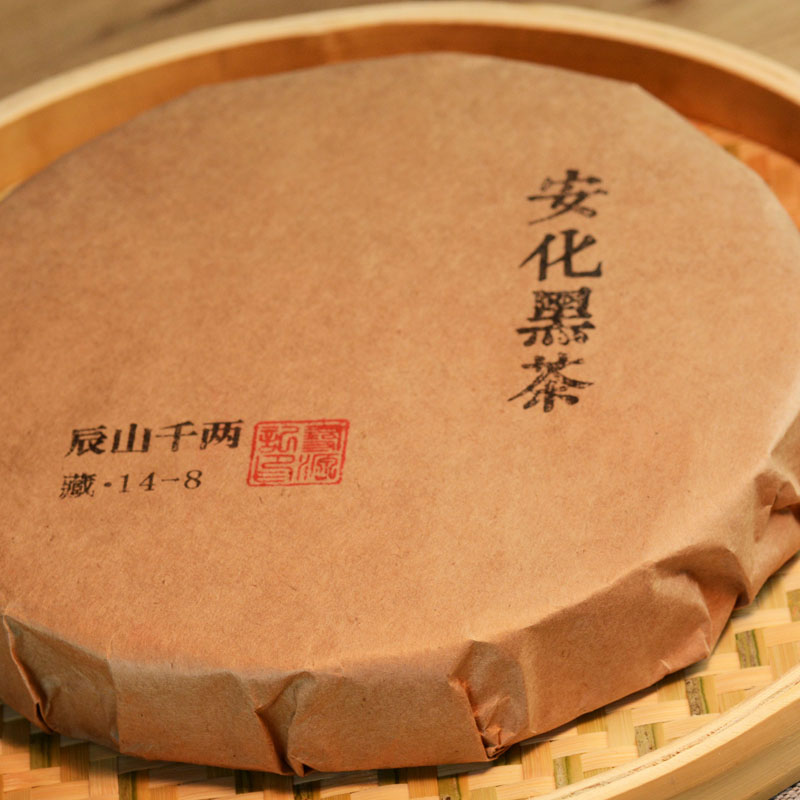 安化黑茶
辰山千两
藏·14-8